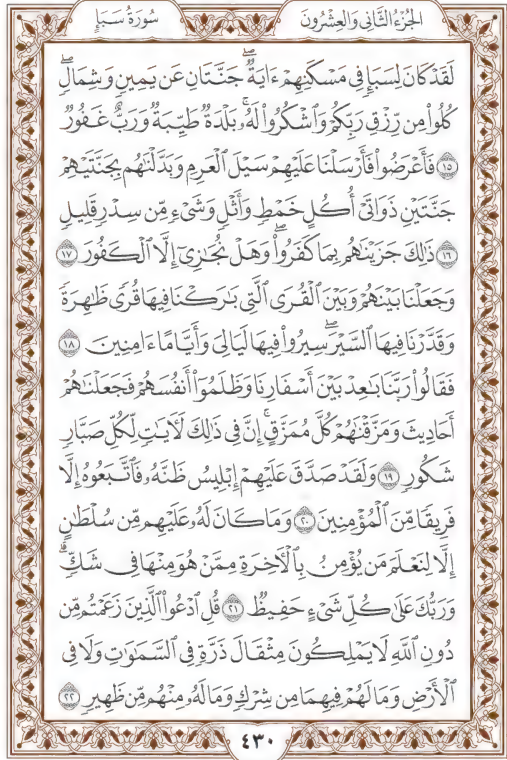 الجزء الثاني والعشرون
سورة سبإ
لَقَدْ كَانَ لِسَبَإٍ فِى مَسْكَنِهِمْ ءَايَةٌۖ جَنَّتَانِ عَن يَمِينٍ وَشِمَالٍۖ
كُلُوا۟ مِن رِّزْقِ رَبِّكُمْ وَٱشْكُرُوا۟ لَهُۥۚ بَلْدَةٌ طَيِّبَةٌ وَرَبٌّ غَفُورٌ
١٥ فَأَعْرَضُوا۟ فَأَرْسَلْنَا عَلَيْهِمْ سَيْلَ ٱلْعَرِمِ وَبَدَّلْنَٰهُم بِجَنَّتَيْهِمْ
جَنَّتَيْنِ ذَوَاتَىْ أُكُلٍ خَمْطٍ وَأَثْلٍ وَشَىْءٍ مِّن سِدْرٍ قَلِيلٍ
١٦ ذَٰلِكَ جَزَيْنَٰهُم بِمَا كَفَرُوا۟ۖ وَهَلْ نُجَٰزِىٓ إِلَّا ٱلْكَفُورَ ١٧
وَجَعَلْنَا بَيْنَهُمْ وَبَيْنَ ٱلْقُرَى ٱلَّتِى بَٰرَكْنَا فِيهَا قُرًى ظَٰهِرَةً
وَقَدَّرْنَا فِيهَا ٱلسَّيْرَۖ سِيرُوا۟ فِيهَا لَيَالِىَ وَأَيَّامًا ءَامِنِينَ ١٨
فَقَالُوا۟ رَبَّنَا بَٰعِدْ بَيْنَ أَسْفَارِنَا وَظَلَمُوٓا۟ أَنفُسَهُمْ فَجَعَلْنَٰهُمْ
أَحَادِيثَ وَمَزَّقْنَٰهُمْ كُلَّ مُمَزَّقٍۚ إِنَّ فِى ذَٰلِكَ لَءَايَٰتٍ لِّكُلِّ صَبَّارٍ
شَكُورٍ ١٩ وَلَقَدْ صَدَّقَ عَلَيْهِمْ إِبْلِيسُ ظَنَّهُۥ فَٱتَّبَعُوهُ إِلَّا
فَرِيقًا مِّنَ ٱلْمُؤْمِنِينَ ٢٠ وَمَا كَانَ لَهُۥ عَلَيْهِم مِّن سُلْطَٰنٍ
إِلَّا لِنَعْلَمَ مَن يُؤْمِنُ بِٱلْءَاخِرَةِ مِمَّنْ هُوَ مِنْهَا فِى شَكٍّۗ
وَرَبُّكَ عَلَىٰ كُلِّ شَىْءٍ حَفِيظٌ ٢١ قُلِ ٱدْعُوا۟ ٱلَّذِينَ زَعَمْتُم مِّن
دُونِ ٱللَّهِ لَا يَمْلِكُونَ مِثْقَالَ ذَرَّةٍ فِى ٱلسَّمَٰوَٰتِ وَلَا فِى
ٱلْأَرْضِ وَمَا لَهُمْ فِيهِمَا مِن شِرْكٍ وَمَا لَهُۥ مِنْهُم مِّن ظَهِيرٍ ٢٢
٤٣٠